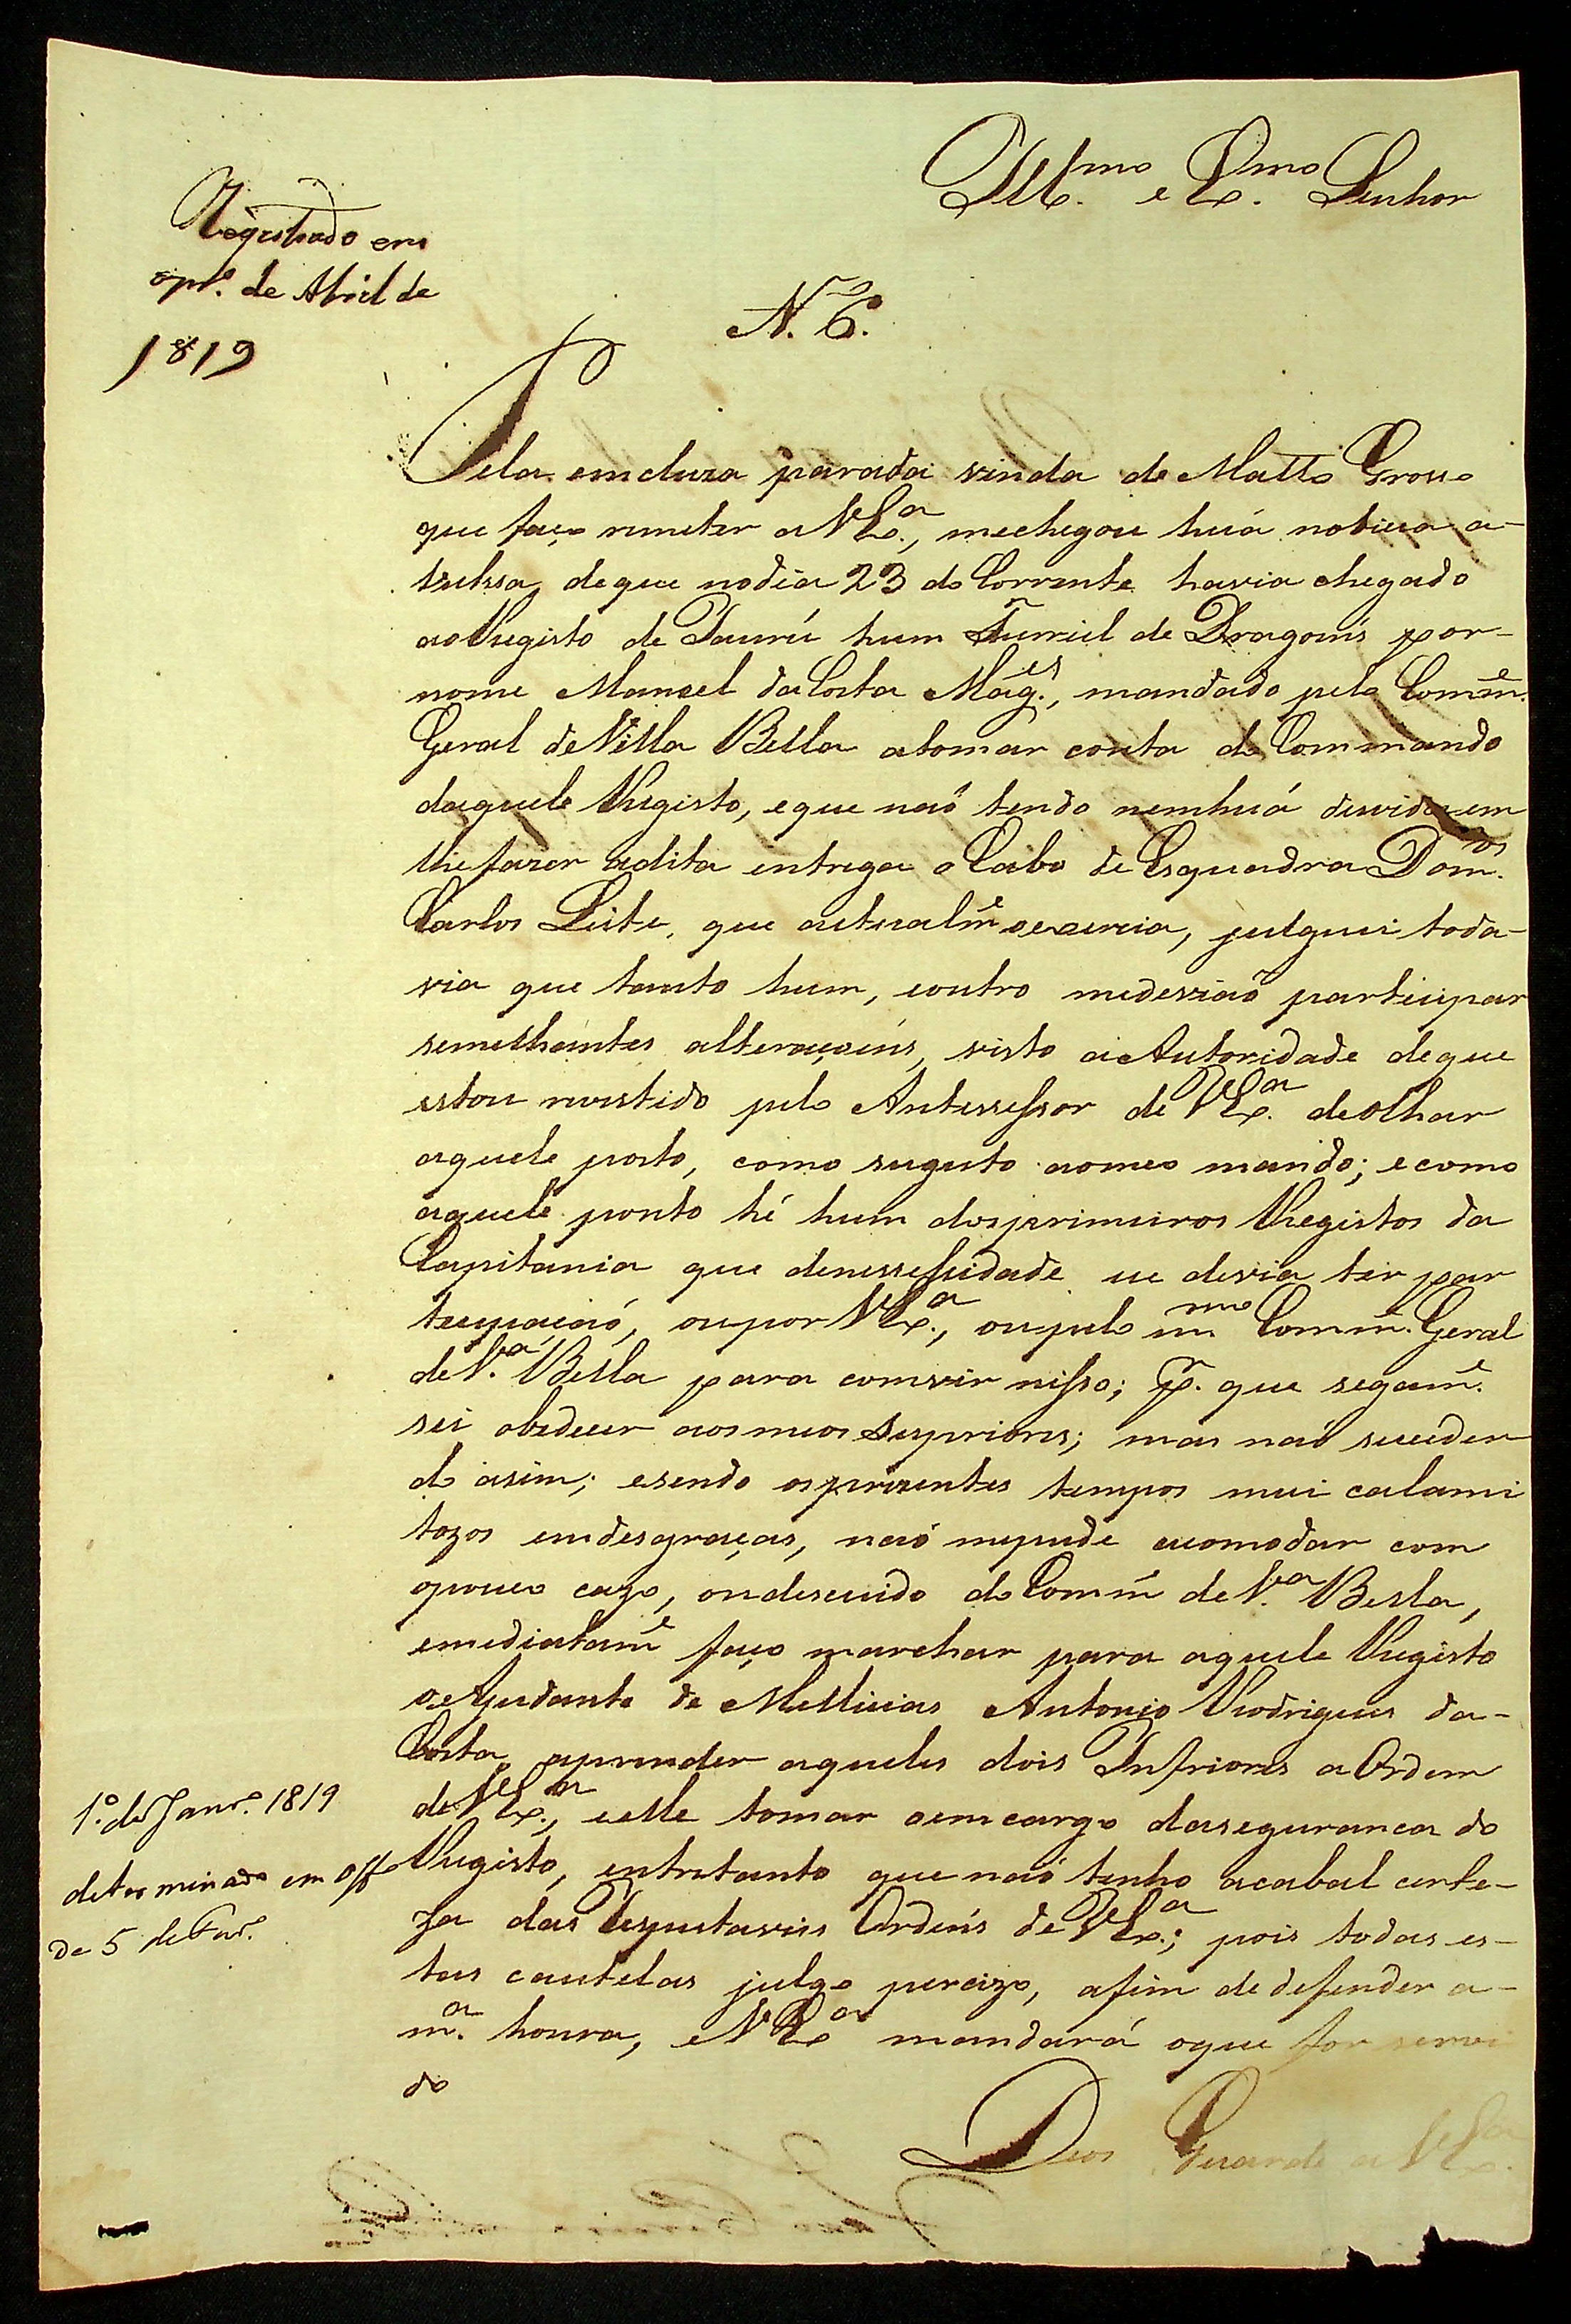 Ill.mo e Ex.mo Senhor
Registado em
de Abril de
1819
N. 6.
Pela emcluza parada vinda de Matto Grosso
que faço remeter a V Ex.a, mechegou huá noticia a-
vulssa, deque nodia 23 do Corrente havia chegado
ao Registo de Jaurú hum Furriel de Dragoins por-
nome Manoel da Costa Mag.es, mandado pelo Comm.e
Geral de Villa Bella atomar conta do Commando
daquele Registo, eque naó tendo nemhuá duvida em
lhefazer adita entrega o Cabo de Esquadra Dom.os
Carlos Leite, que actualm.e oexercia, julguei toda-
via que tanto hum, eoutro medeviaó participar
semelhantes alteraçoins, visto a Autoridade deque
estou revestido pelo Antessessor de V Ex.a de olhar
aquele posto, como sugeito aomeo mando; ecomo
aquele ponto hé hum dosprimeiros Registos da
Capitania que denessessidade eu devia ter par
tecipaçaó, oupor V Ex.a, oupelo m.mo Comm.e Geral
de V.a Bella para comvir nisso; p.r que segam.e
sei obedecer aosmeos Superiores; mas naó suceden
do asim; esendo osprezentes tempos mui calami
tozos emdesgraças, naó mepude acomodar com
opouco cazo, oudescuido do Comm.e de V.a Bella,
emediatam.e faço marchar para aquele Registo
o Ajudante de Millicias Antonio Rodrigues da-
Costa, aprender aqueles dois Inferiores a Ordem
de V Ex.a, eelle tomar oemcargo dasegurança do
Registo, entretanto que naó tenho acabal certe-
za das Respeitaveis Ordens de V Ex.a; pois todas es-
tas cautelas julgo percizo, afim de defender a-
m.a honra, e V Ex.a mandará oque for servi
do
Deos Guarde a V Ex.a
1.o de Janr.o 1819
determinado em off.o
de 5 de